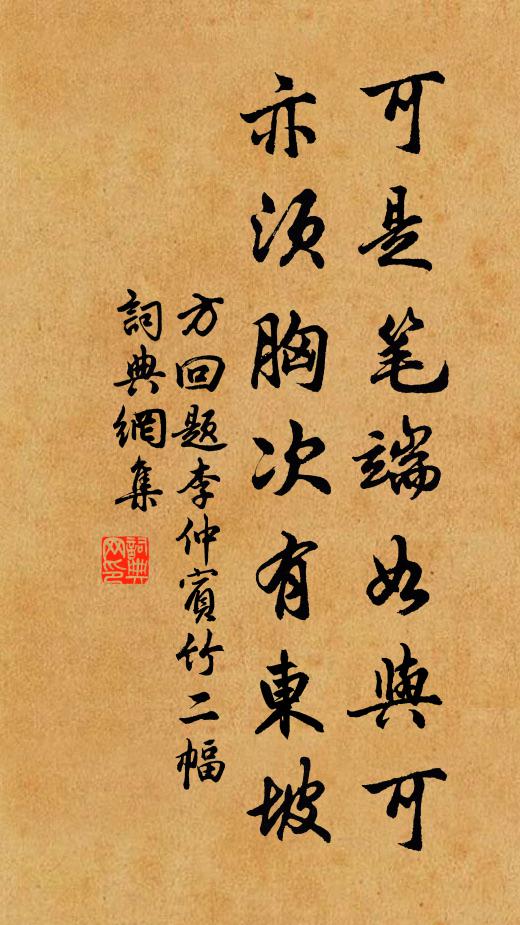 可是笔端如與可
亦須胸次有東坡
方回题李仲賓竹二幅
詞典網集
詞典
网印